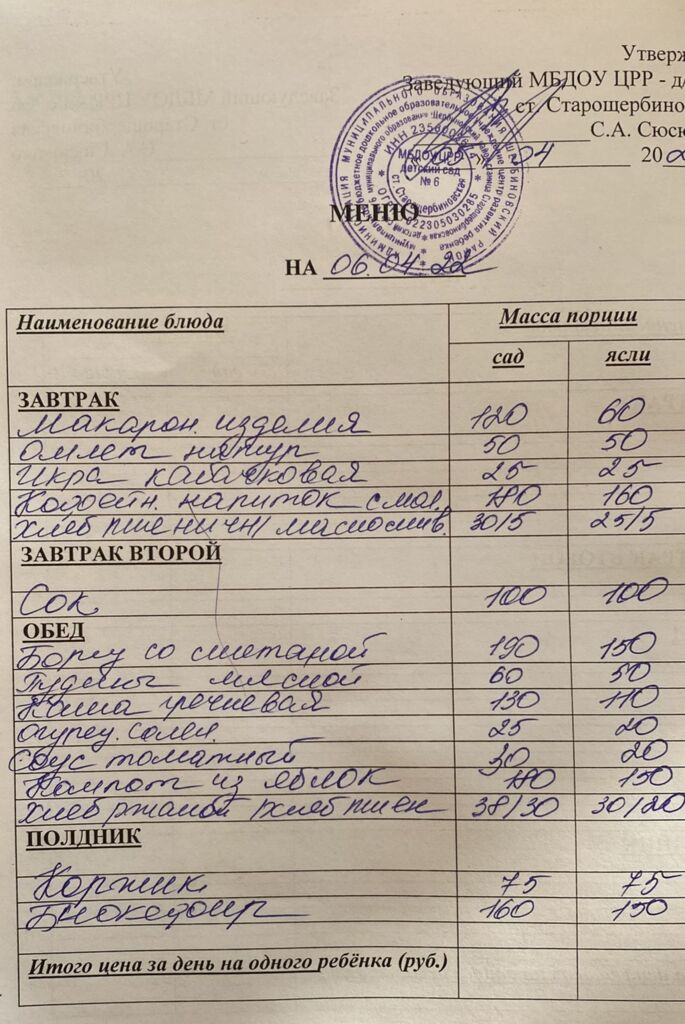 Утверж
Заведующий МБДОУ ЦРР - д/
ст. Старощербино
С.А. Сюсю
04 20
МБДОУ ЦРР
детский сад
№ 6
ст. Старощербиновская
МЕНЮ
НА 06.04.22
Наименование блюда Масса порции
сад ясли
ЗАВТРАК
Макарон. изделия 120 60
Омлет натур 50 50
Икра кабачковая 25 25
напиток с мол. 180 160
Хлеб пшеничн/ маслослив. 30/5 25/5
ЗАВТРАК ВТОРОЙ
Сок 100 100
ОБЕД
Борщ со сметаной 190 150
Пудинг мясной 60 50
Каша гречневая 130 110
Огурец. солен. 25 20
Соус томатный 30 20
Компот из яблок 180 150
Хлеб ржаной /хлеб пшен 38/30 30/20
ПОЛДНИК
Коржик 75 75
160 150
Итого цена за день на одного ребёнка (руб.)